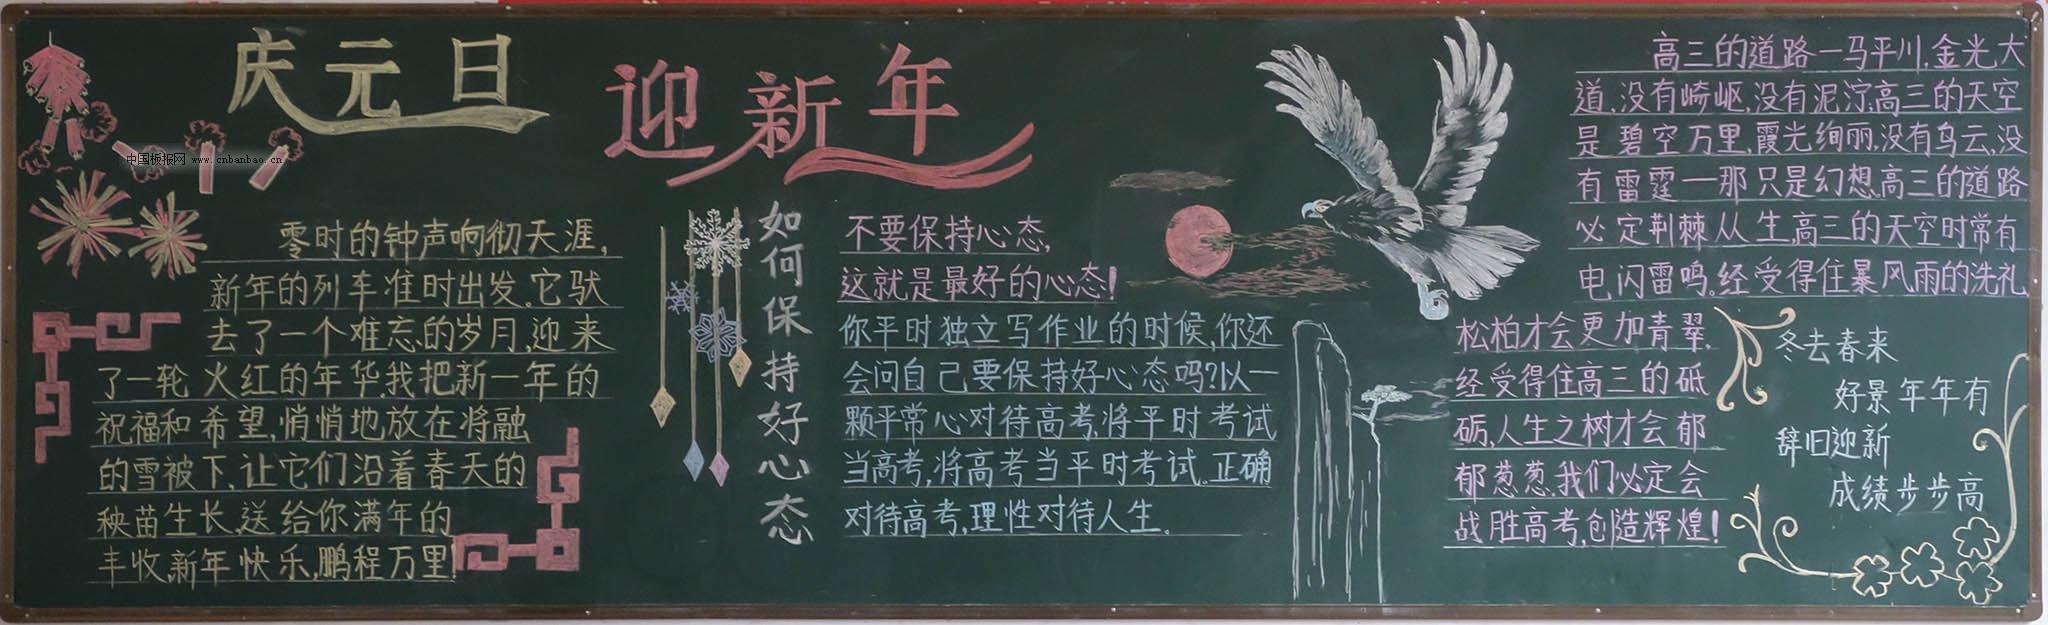 庆元旦
迎新年
中国板报网 www.cnbanbao.cn
零时的钟声响彻天涯,
新年的列车准时出发。它驮
去了一个难忘的岁月,迎来
了一轮火红的年华.我把新一年的
祝福和希望,悄悄地放在将融
的雪被下,让它们沿着春天的
秧苗生长,送给你满年的
丰收,新年快乐,鹏程万里!
如何保持好心态
不要保持心态,
这就是最好的心态!
你平时独立写作业的时候,你还
会问自己要保持好心态吗?以一
颗平常心对待高考,将平时考试
当高考,将高考当平时考试.正确
对待高考,理性对待人生.
高三的道路一马平川,金光大
道,没有崎岖,没有泥泞,高三的天空
是碧空万里,霞光绚丽,没有乌云,没
有雷霆—那只是幻想,高三的道路
必定荆棘从生,高三的天空时常有
电闪雷鸣。经受得住暴风雨的洗礼
松柏才会更加青翠.
经受得住高三的砥
砺,人生之树才会郁
郁葱葱.我们必定会
战胜高考,创造辉煌!
冬去春来
好景年年有
辞旧迎新
成绩步步高